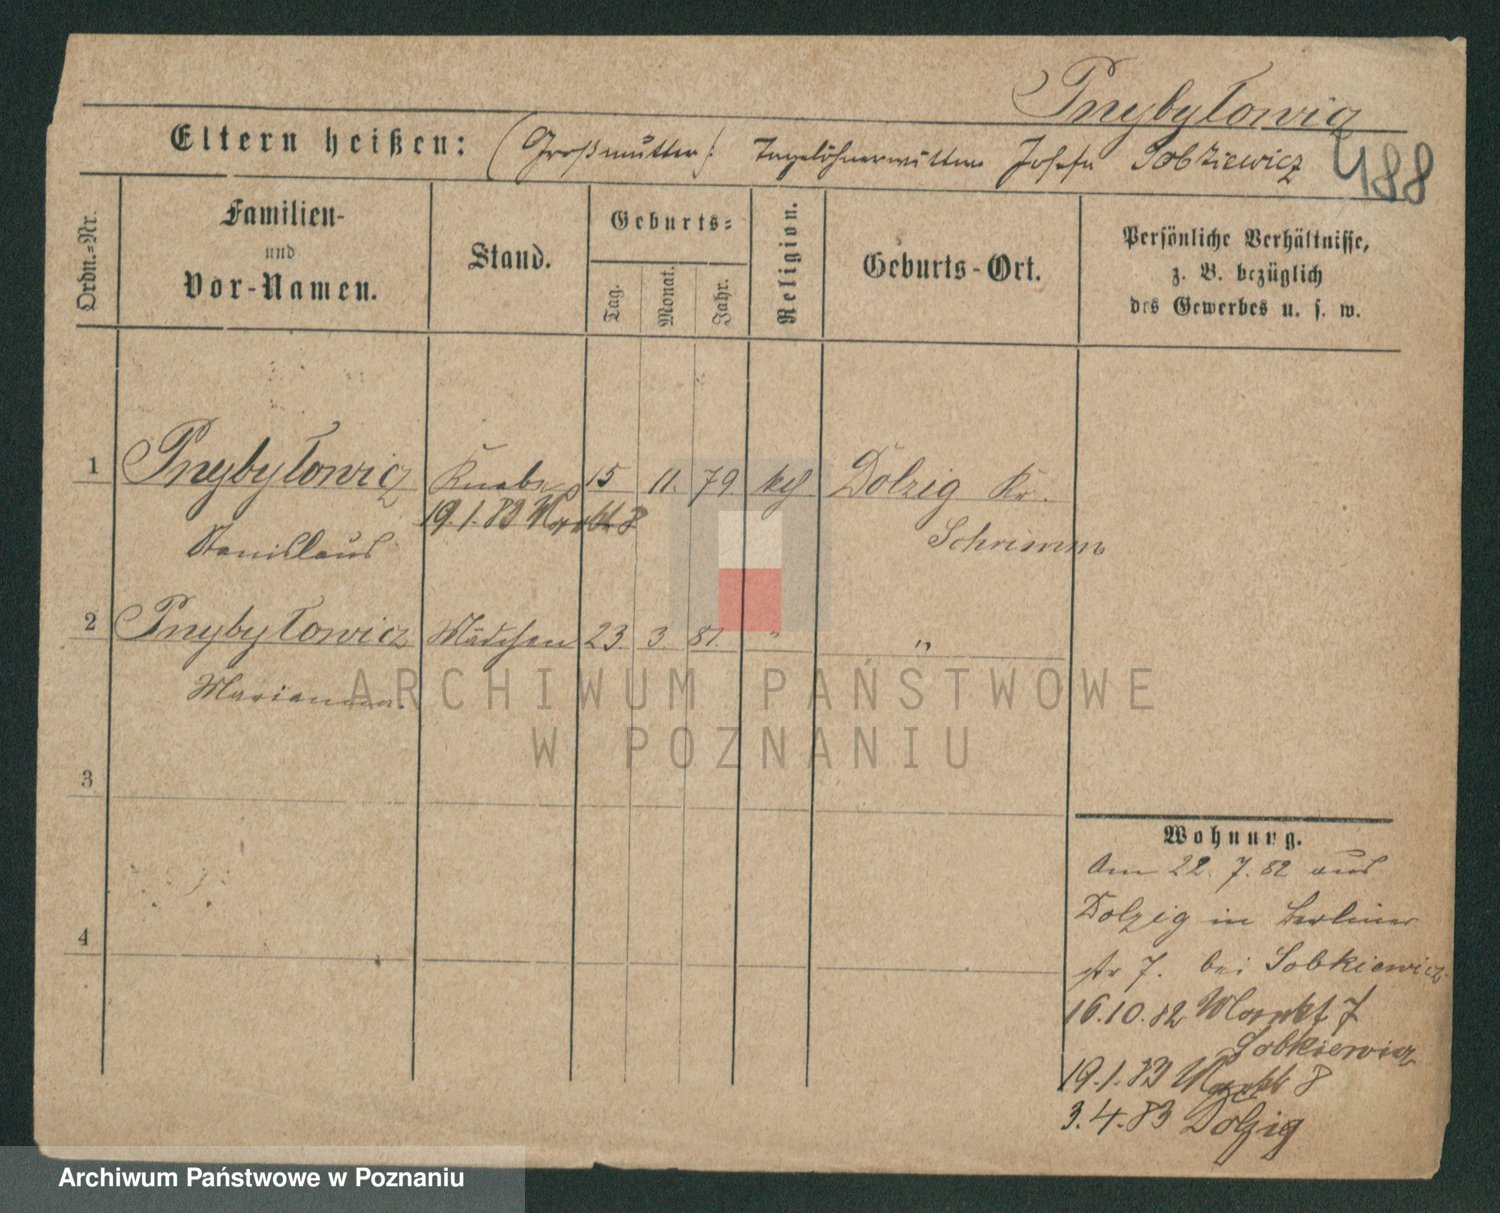 Przybyłowicz
Eltern heißen: (Großmutter): Tagelöhnerwittwe Josefa Sobkiewicz
488
Ordn.=Nr.
Familien-
und
Vor-Namen.
Stand.
Geburts=
Tag.
Monat.
Jahr.
Religion.
Geburts-Ort.
Persönliche Verhältnisse,
z. B. bezüglich
des Gewerbes u. s. w.
1 Przybyłowicz Knabe 15 11. 79 kth Dolzig Kr.
19.1.83 Markt 8
Stanislaus Schrimm
2 Przybyłowicz Mädchen 23. 3. 81. " "
Marianna.
3
4
Wohnung.
Am 22. 7. 82 aus
Dolzig in Berliner
str 7. bei Sobkiewicz
16.10.82 Markt 7
Sobkiewicz
19.1.83 Markt 8
3.4.83 Dolzig
ARCHIWUM PAŃSTWOWE
W POZNANIU
Archiwum Państwowe w Poznaniu